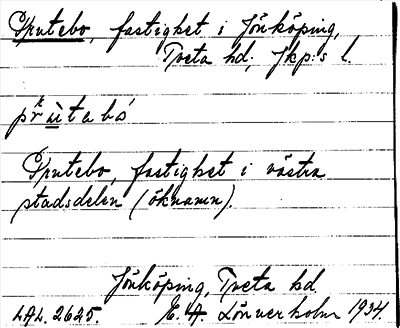 Sputebo, fastighet i Jönköping,
Tveta hd, Jkp:s l.
Sputebo, fastighet i västra
stadsdelen (öknamn).
Jönköping, Tveta hd
LAL. 2625. E. A. Lönnerholm 1934.